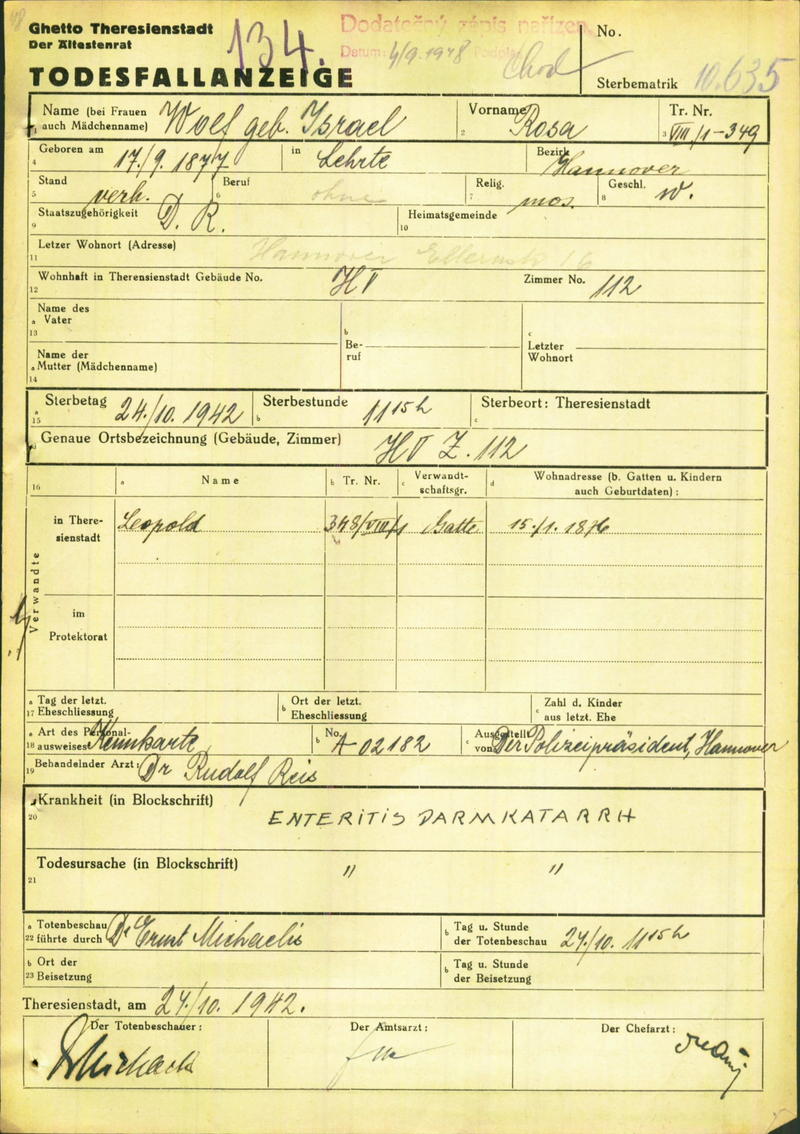 Ghetto Theresienstadt
Der Ältestenrat
134.
Dodatečný zápis nařízen.
Datum: 4/9.1948
No.
TODESFALLANZEIGE
Sterbematrik 10.635
Name (bei Frauen auch Mädchenname) Wolf geb. Israel
Vorname Rosa
Tr. Nr. VIII/1-349
Geboren am 17./9. 1877 in Lehrte Bezirk Hannover
Stand verh. Beruf ohne Relig. mos. Geschl. w.
Staatszugehörigkeit D. R. Heimatsgemeinde
Letzer Wohnort (Adresse) Hannover 16
Wohnhaft in Theresienstadt Gebäude No. HV Zimmer No. 112
Name des Vater
Be-ruf
Letzter Wohnort
Name der Mutter (Mädchenname)
Sterbetag 24./10. 1942 Sterbestunde 11 15 h Sterbeort: Theresienstadt
Genaue Ortsbezeichnung (Gebäude, Zimmer) HV Z. 112
16 a Name b Tr. Nr. c Verwandt-schaftsgr. d Wohnadresse (b. Gatten u. Kindern auch Geburtdaten):
Verwandte
in There-sienstadt Leopold 348/VIII/1 Gatte 15./1. 1876
im Protektorat
17 a Tag der letzt. Eheschliessung b Ort der letzt. Eheschliessung c Zahl d. Kinder aus letzt. Ehe
18 a Art des Personal-ausweises Kennkarte b No. A 02182 c Ausgestellt von Der Polizeipräsident, Hannover
19 Behandelnder Arzt: Dr Rudolf Reis
20 Krankheit (in Blockschrift) ENTERITIS DARMKATARRH
21 Todesursache (in Blockschrift) " "
22 a Totenbeschau führte durch Dr Ernst Michaelis b Tag u. Stunde der Totenbeschau 24/10. 11 15 h
23 b Ort der Beisetzung b Tag u. Stunde der Beisetzung
Theresienstadt, am 24./10. 1942.
Der Totenbeschauer: Der Amtsarzt: Der Chefarzt: